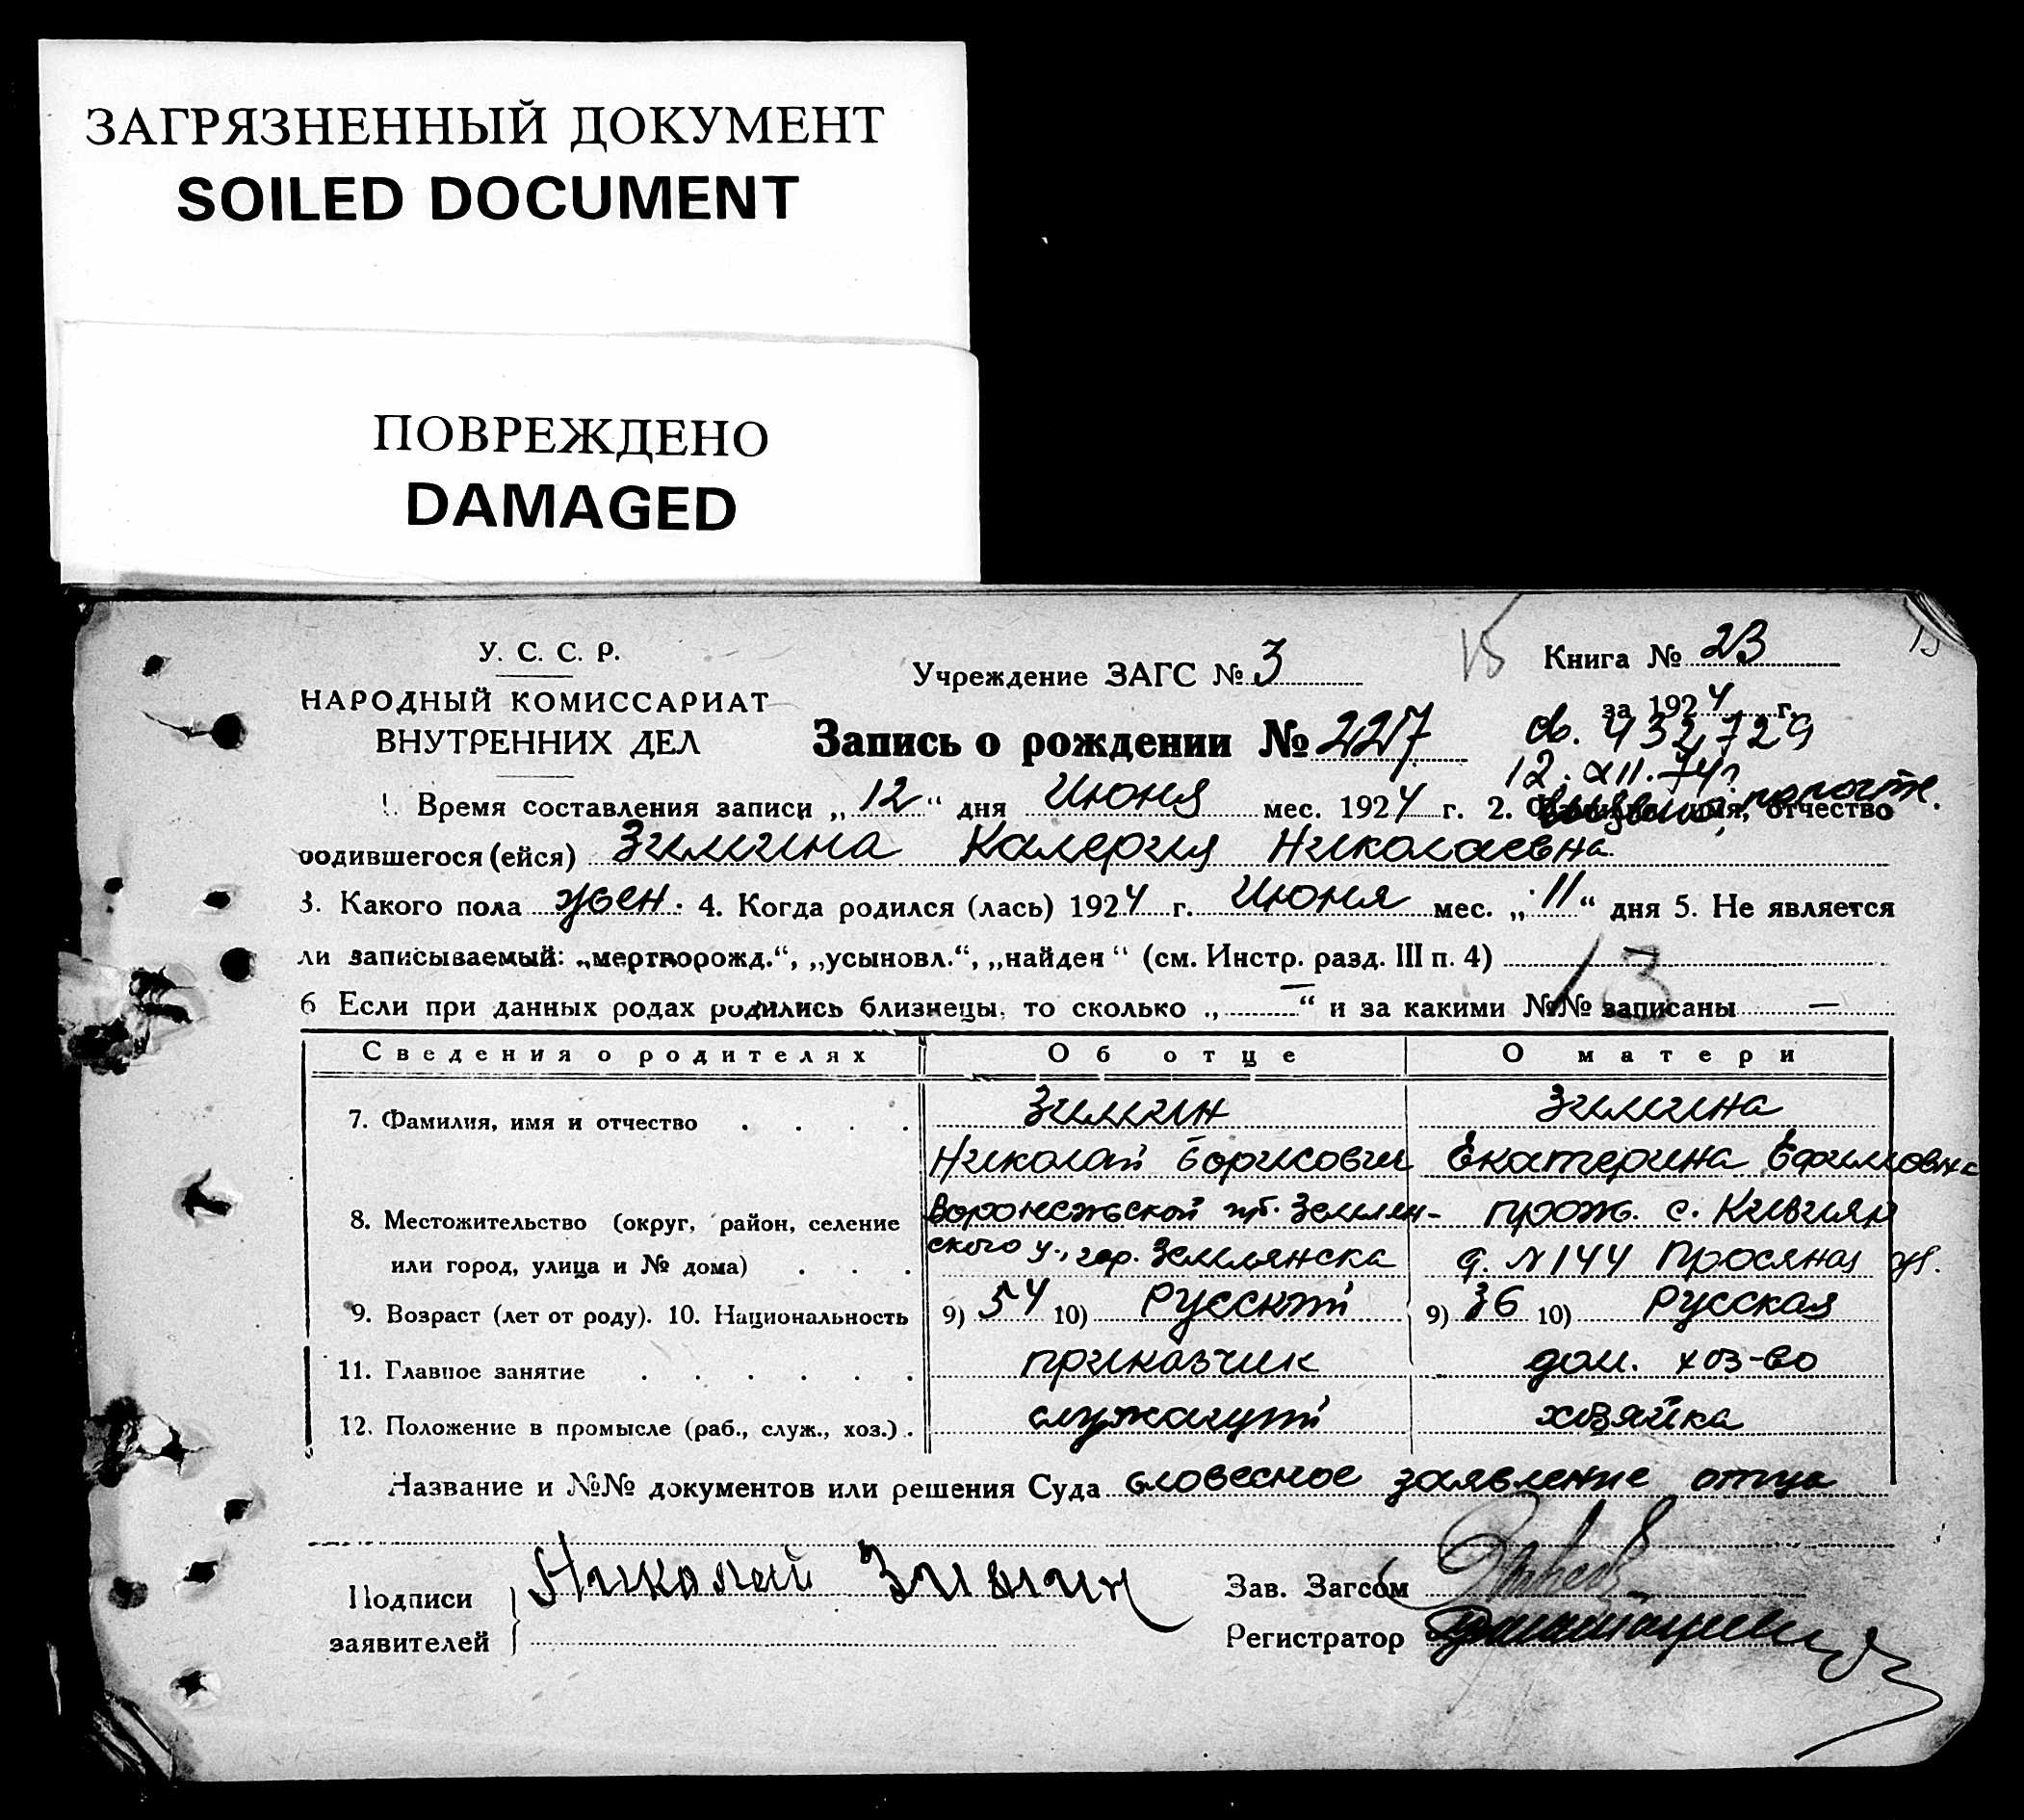 ЗАГРЯЗНЕННЫЙ ДОКУМЕНТ
SOILED DOCUMENT
ПОВРЕЖДЕНО
DAMAGED
У. С. С. Р.
НАРОДНЫЙ КОМИССАРИАТ
ВНУТРЕННИХ ДЕЛ
Учреждение ЗАГС № 3
15
Книга № 23
за 1924 г.
Запись о рождении № 227
св. 432729
12. XII. 74г
1. Время составления записи „12“ дня Июня мес. 1924 г. 2. Фамилия, имя, отчество
родившегося (ейся) Зимина Калерия Николаевна.
3. Какого пола жен. 4. Когда родился (лась) 1924 г. Июня мес. „11“ дня 5. Не является
ли записываемый: „мертворожд.“, „усыновл.“, „найден“ (см. Инстр. разд. III п. 4) —
13
6 Если при данных родах родились близнецы, то сколько „—“ и за какими №№ записаны —
Сведения о родителях Об отце О матери
7. Фамилия, имя и отчество . . . . Зимин Зимина
Николай Борисович Екатерина Ефимовна
8. Местожительство (округ, район, селение Воронежской губ. Землян- прож. с.
или город, улица и № дома) . . . ского у., гор. Землянска д. № 144 Просяная ул.
9. Возраст (лет от роду). 10. Национальность 9) 54 10) Русский 9) 36 10) Русская
11. Главное занятие . . . . . . приказчик дом. хоз-во
12. Положение в промысле (раб., служ., хоз.) . служащий хозяйка
Название и №№ документов или решения Суда словесное заявление отца
Подписи
заявителей
Николай Зимин
Зав. Загсом
Регистратор